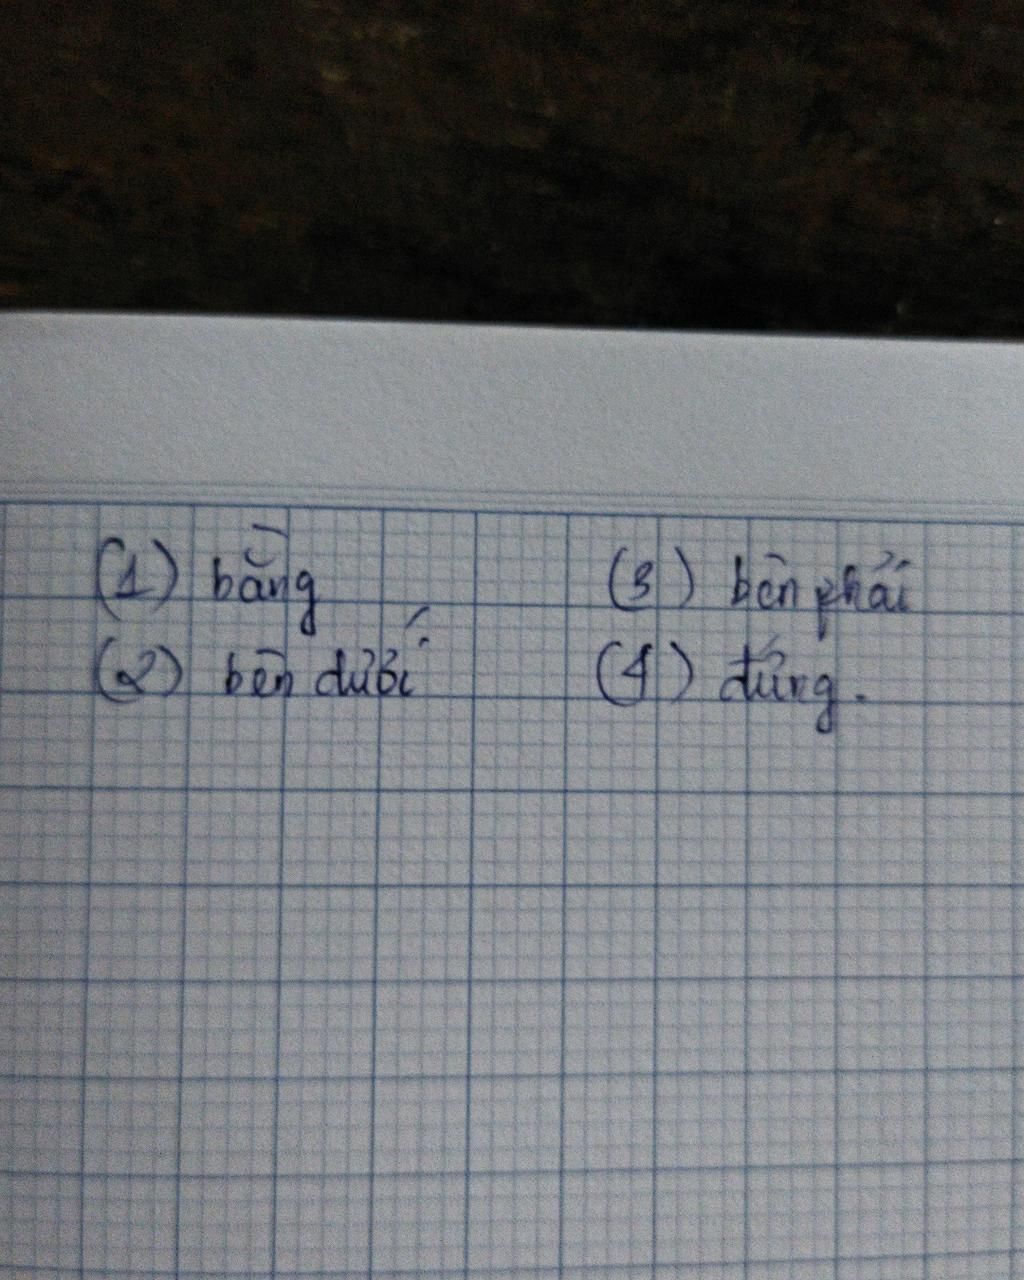 (1) bằng (3) bên phải
(2) bên dưới (4) đứng.